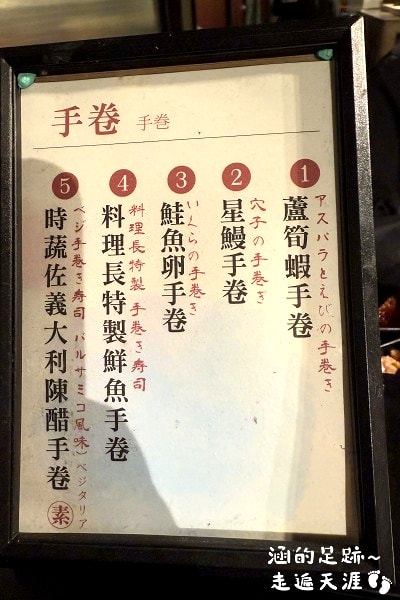 手卷 手巻
1
アスパラとえびの手巻き
蘆筍蝦手卷
2
穴子の手巻き
星鰻手卷
3
いくらの手巻き
鮭魚卵手卷
4
料理長特製 手巻き寿司
料理長特製鮮魚手卷
5
ベジ手巻き寿司 バルサミコ風味)ベジタリア
時蔬佐義大利陳醋手卷 素
涵的足跡~
走遍天涯